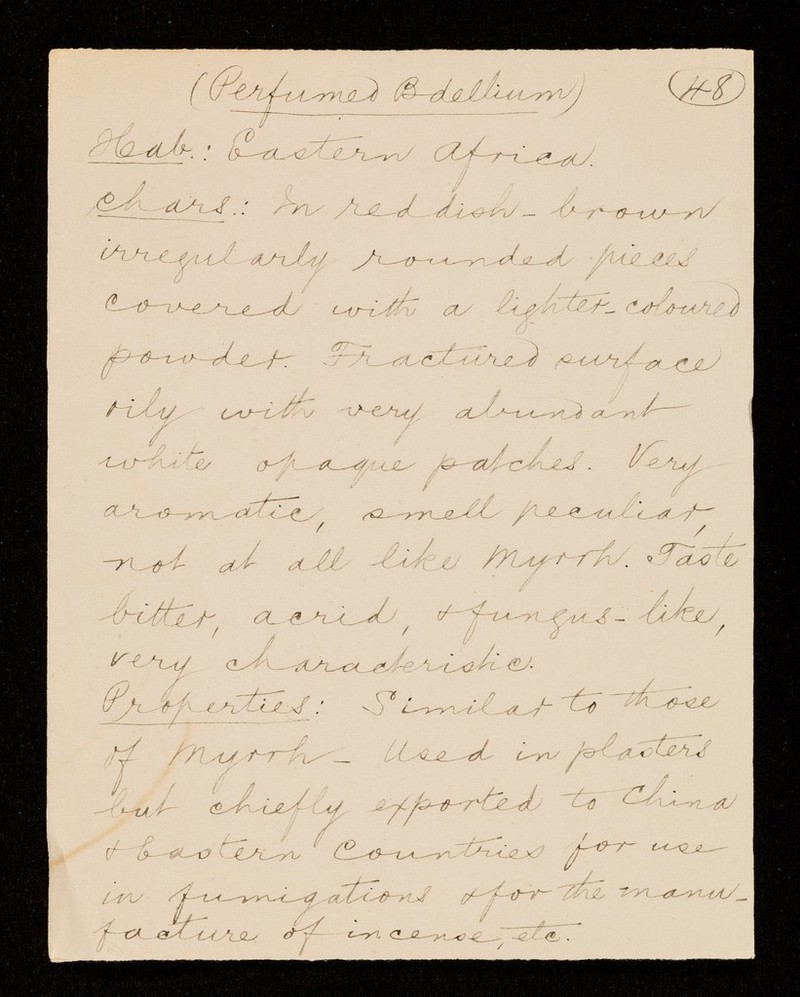 (Perfumed Bdellium) 48
Hab.: Eastern Africa.
Chars.: In reddish-brown
irregularly rounded pieces
covered with a lighter-coloured
powder. Fractured surface
oily with very abundant
white opaque patches. Very
aromatic, smell peculiar,
not at all like Myrrh. Taste
bitter, acrid, & fungus-like,
very characteristic.
Properties: Similar to those
of Myrrh - Used in plasters
but chiefly exported to China
& Eastern Countries for use
in fumigations & for the manu-
facture of incense, etc.